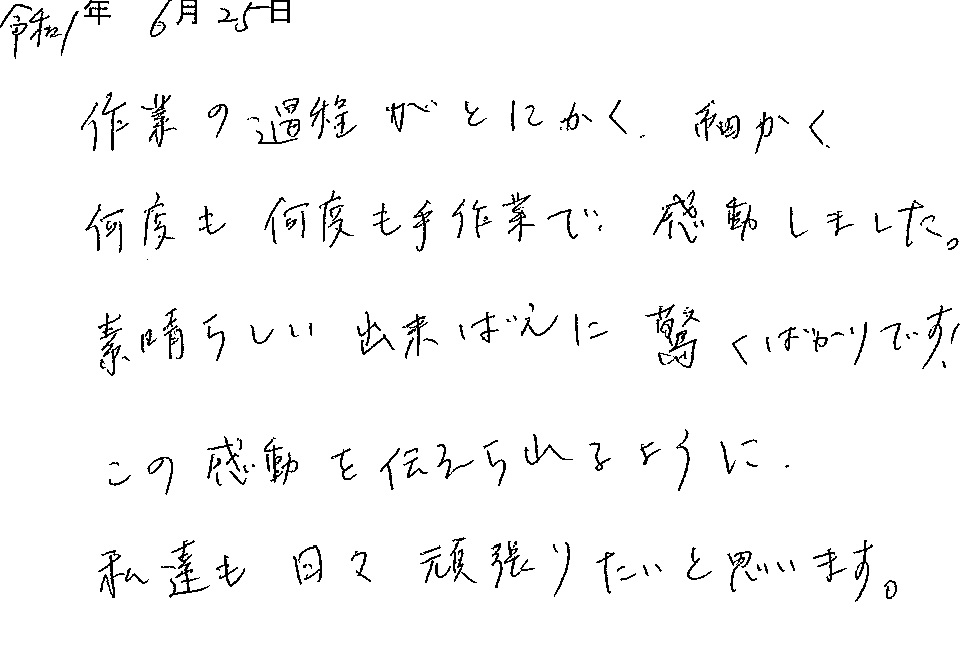 令和1年 6月25日
作業の過程がとにかく、細かく、
何度も何度も手作業で、感動しました。
素晴らしい出来ばえに驚くばかりです!
この感動を伝えられるように、
私達も日々頑張りたいと思います。